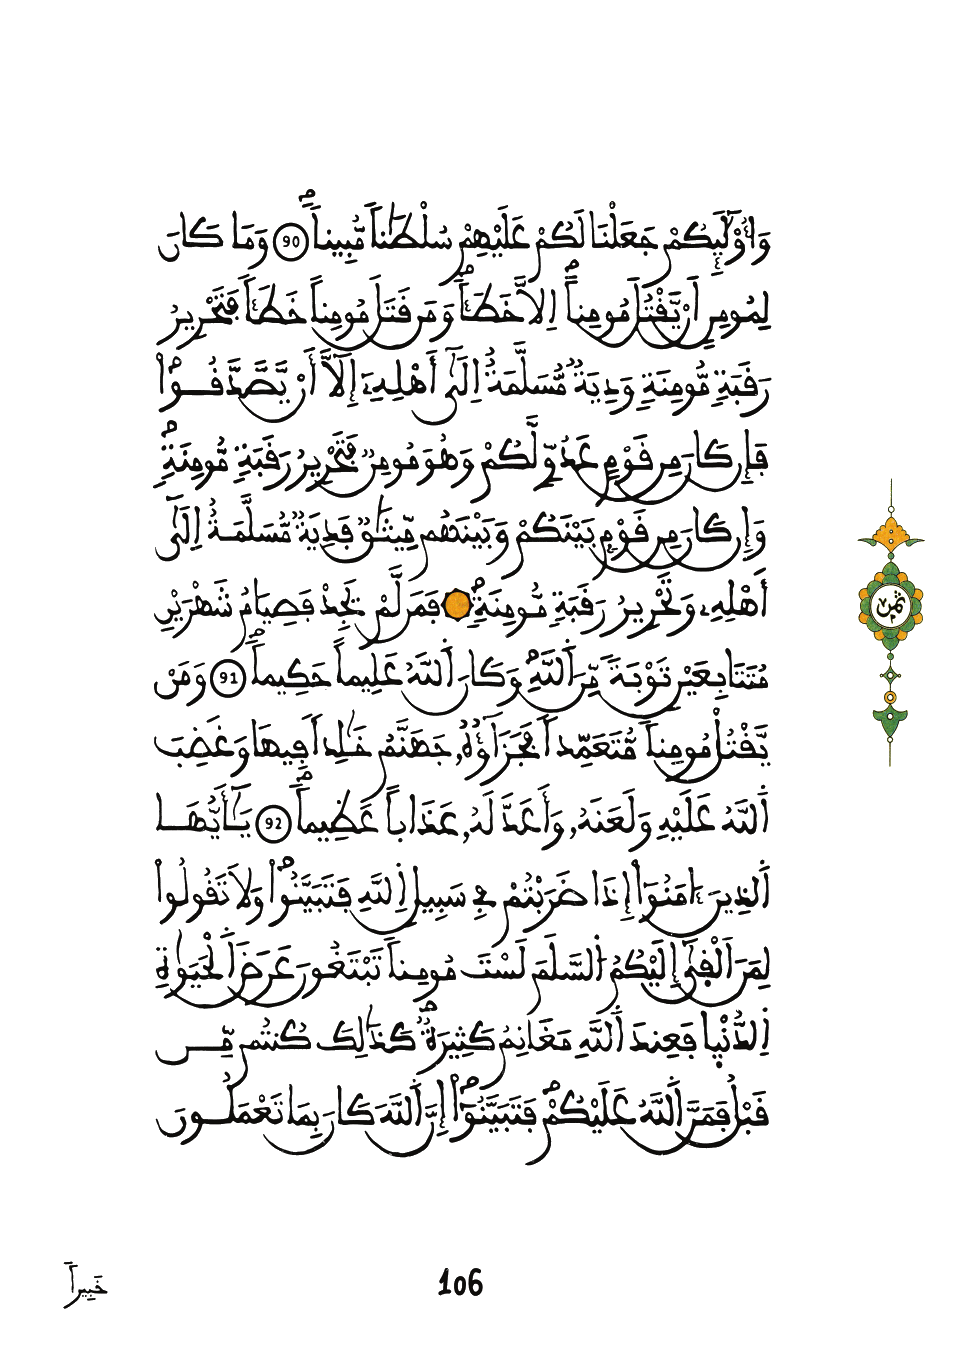 وَأُوْلَٰٓئِكُمْ جَعَلْنَا لَكُمْ عَلَيْهِمْ سُلْطَٰناٗ مُّبِيناٗۖ 90 وَمَا كَانَ
لِمُومِنٍ أَنْ يَّقْتُلَ مُومِناً إِلَّا خَطَـٔاٗۖ وَمَن قَتَلَ مُومِناً خَطَـٔاٗ فَتَحْرِيرُ
رَقَبَةٖ مُّومِنَةٖ وَدِيَةٞ مُّسَلَّمَةٌ إِلَىٰٓ أَهْلِهِۦٓ إِلَّآ أَنْ يَّصَّدَّقُواْۖ
فَإِن كَانَ مِن قَوْمٍ عَدُوّٖ لَّكُمْ وَهُوَ مُومِنٞ فَتَحْرِيرُ رَقَبَةٖ مُّومِنَةٖۖ
وَإِن كَانَ مِن قَوْمِۢ بَيْنَكُمْ وَبَيْنَهُم مِّيثَٰقٞ فَدِيَةٞ مُّسَلَّمَةٌ إِلَىٰٓ
أَهْلِهِۦ وَتَحْرِيرُ رَقَبَةٖ مُّومِنَةٖۖ فَمَن لَّمْ يَجِدْ فَصِيَامُ شَهْرَيْنِ
مُتَتَابِعَيْنِ تَوْبَةٗ مِّنَ اَ۬للَّهِۖ وَكَانَ اَ۬للَّهُ عَلِيماً حَكِيماٗۖ 91 وَمَنْ
يَّقْتُلْ مُومِناٗ مُّتَعَمِّداٗ فَجَزَآؤُهُۥ جَهَنَّمُ خَٰلِداٗ فِيهَا وَغَضِبَ
اَ۬للَّهُ عَلَيْهِ وَلَعَنَهُۥ وَأَعَدَّ لَهُۥ عَذَاباً عَظِيماٗۖ 92 يَٰٓأَيُّهَا
اَ۬لذِينَ ءَامَنُوٓاْ إِذَا ضَرَبْتُمْ فِے سَبِيلِ اِ۬للَّهِ فَتَبَيَّنُواْۖ وَلَا تَقُولُواْ
لِمَنَ اَلْق۪ىٰٓ إِلَيْكُمُ اُ۬لسَّلَمَ لَسْتَ مُومِناٗ تَبْتَغُونَ عَرَضَ اَ۬لْحَيَوٰةِ
اِ۬لدُّنْي۪ا فَعِندَ اَ۬للَّهِ مَغَانِمُ كَثِيرَةٞۖ كَذَٰلِكَ كُنتُم مِّن
قَبْلُ فَمَنَّ اَ۬للَّهُ عَلَيْكُمْ فَتَبَيَّنُوٓاْۖ إِنَّ اَ۬للَّهَ كَانَ بِمَا تَعْمَلُونَ
ثمن
خَبِيراٗ
106